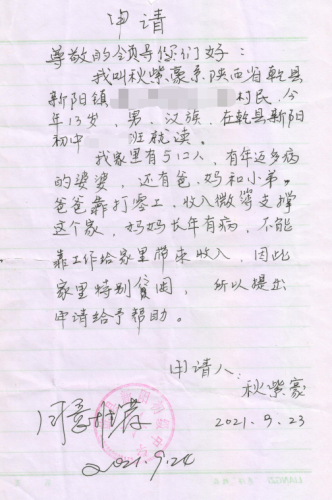 申请
尊敬的领导你们好：
我叫秋紫豪系陕西省乾县
新阳镇 村民，今
年13岁，男、汉族，在乾县新阳
初中 班就读。
我家里有5口人，有年迈多病
的婆婆，还有爸、妈和小弟。
爸爸靠打零工，收入微薄支撑
这个家，妈妈长年有病，不能
靠工作给家里带来收入，因此
家里特别贫困，所以提出
申请给予帮助。
申请人：
秋紫豪
2021.9.23
同意推荐
2021.9.24